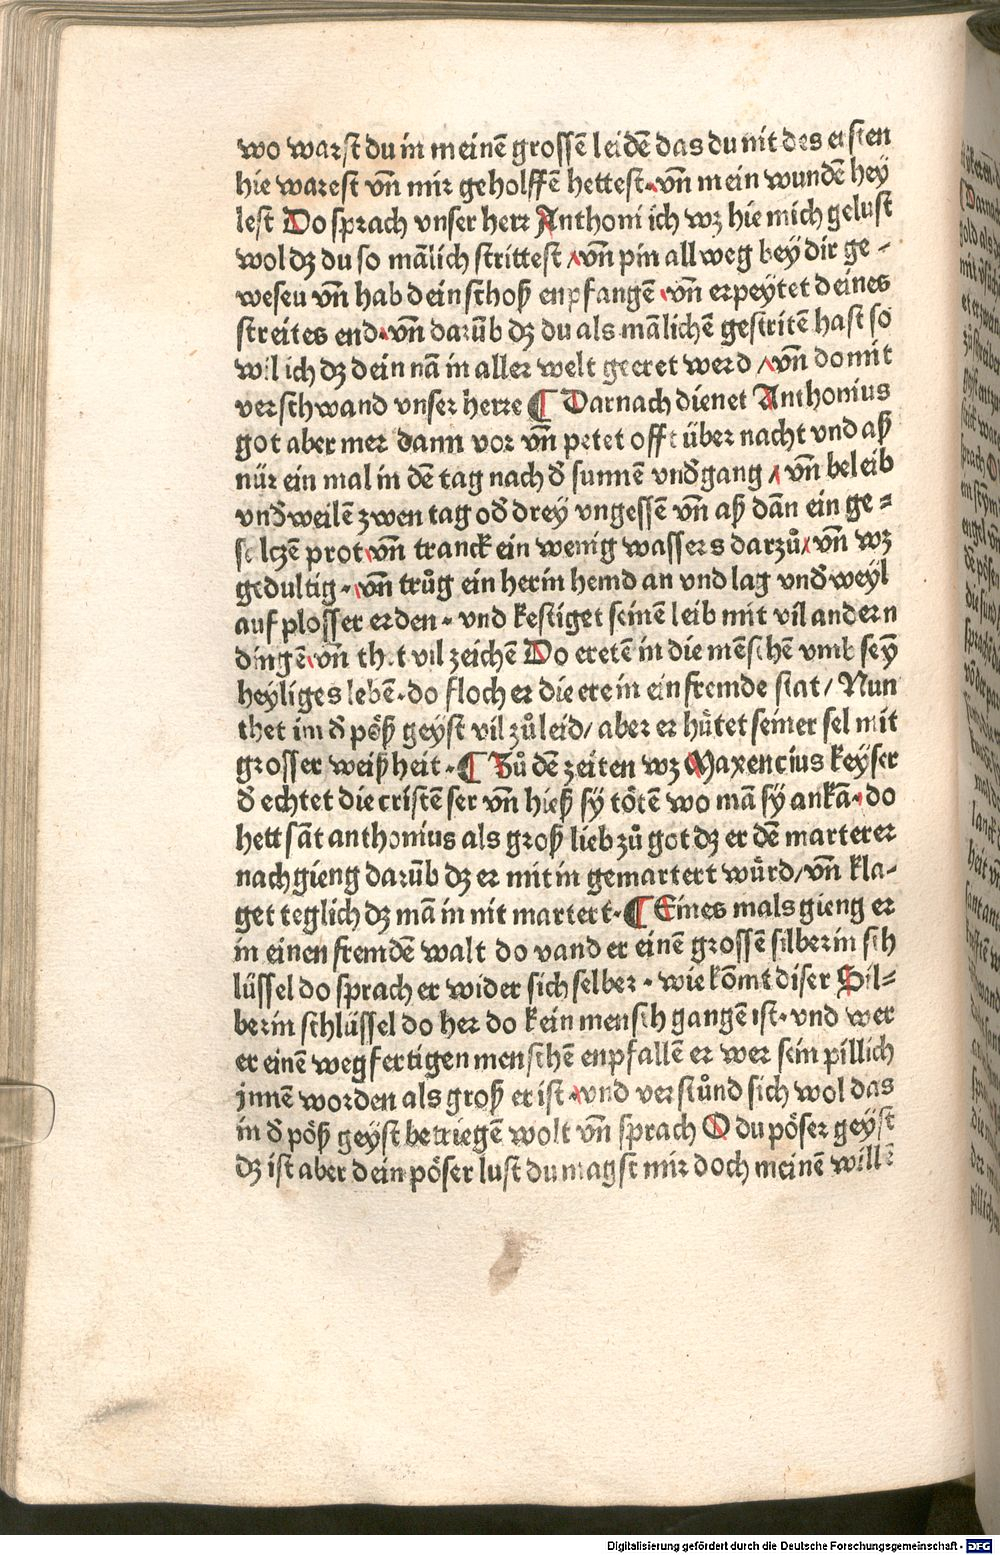 wo warst du in meinē grossē leidē das du nit des ersten
hie warest vn̄ mir geholffē hettest· vn̄ mein wundē hey
lest Do sprach vnser herr Anthoni ich wz hie mich gelust
wol dz du so mālich strittest / vn̄ pin allweg bey dir ge-
wesen vn̄ hab dein schoß enpfangē· vn̄ erpeytet deines
streites end· vn̄ darūb dz du als mālichē gestritē hast so
wil ich dz dein nā in aller welt geeret werd / vn̄ do mit
verschwand vnser herre ¶ Darnach dienet Anthonius
got aber mer dann vor vn̄ petet offt über nacht vnd aß
nür ein mal in dē tag nach đ sunnē vnđgang / vn̄ beleib
vnđweilē zwen tag ođ drey vngessē vn̄ aß dān ein ge-
salczē prot· vn̄ tranck ein wenig wassers darzů· vn̄ wz
gedultig· vn̄ trůg ein herin hemd an vnd lag vnđweyl
auf plosser erden· vnd kestiget seinē leib mit vil andern
dingē· vn̄ thet vil zeichē Do eretē in die mēschē vmb sey
heyliges lebē· do floch er die ere in ein fremde stat / Nun
thet im đ pöß geyst vil zůleid / aber er hütet seiner sel mit
grosser weißheit· ¶ Zů dē zeiten wz Maxencius keyser
đ echtet die cristē ser vn̄ hieß sy tötē wo mā sy ankā· do
hett sāt anthonius als groß lieb zů got dz er dē marterer
nachgieng darūb dz er mit in gemartert würd / vn̄ kla-
get teglich dz mā in nit martert· ¶ Eines mals gieng er
in einen fremdē walt do vand er einē grossē silberin sch
lüssel do sprach er wider sich selber· wie kōmt diser Sil-
berin schlüssel do her do kein mensch gangē ist· vnd wer
er einē wegfertigen menschē enpfallē er wer sein pillich
jnnē worden als groß er ist· vnd verstůnd sich wol das
in đ pöß geyst betriegē wolt vn̄ sprach O du pöser geyst
dz ist aber dein pöser lust du magst mir doch meinē willē
Digitalisierung gefördert durch die Deutsche Forschungsgemeinschaft - DFG